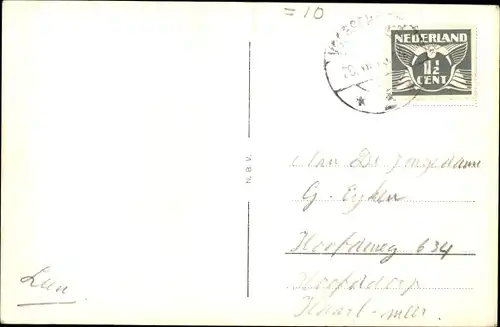 = 10
NEDERLAND
1½
CENT
N. B. V.
Aan De Jongedame
G. Eyken
Hoofdweg 634
Hoofddorp
Haarl-meer.
Leen